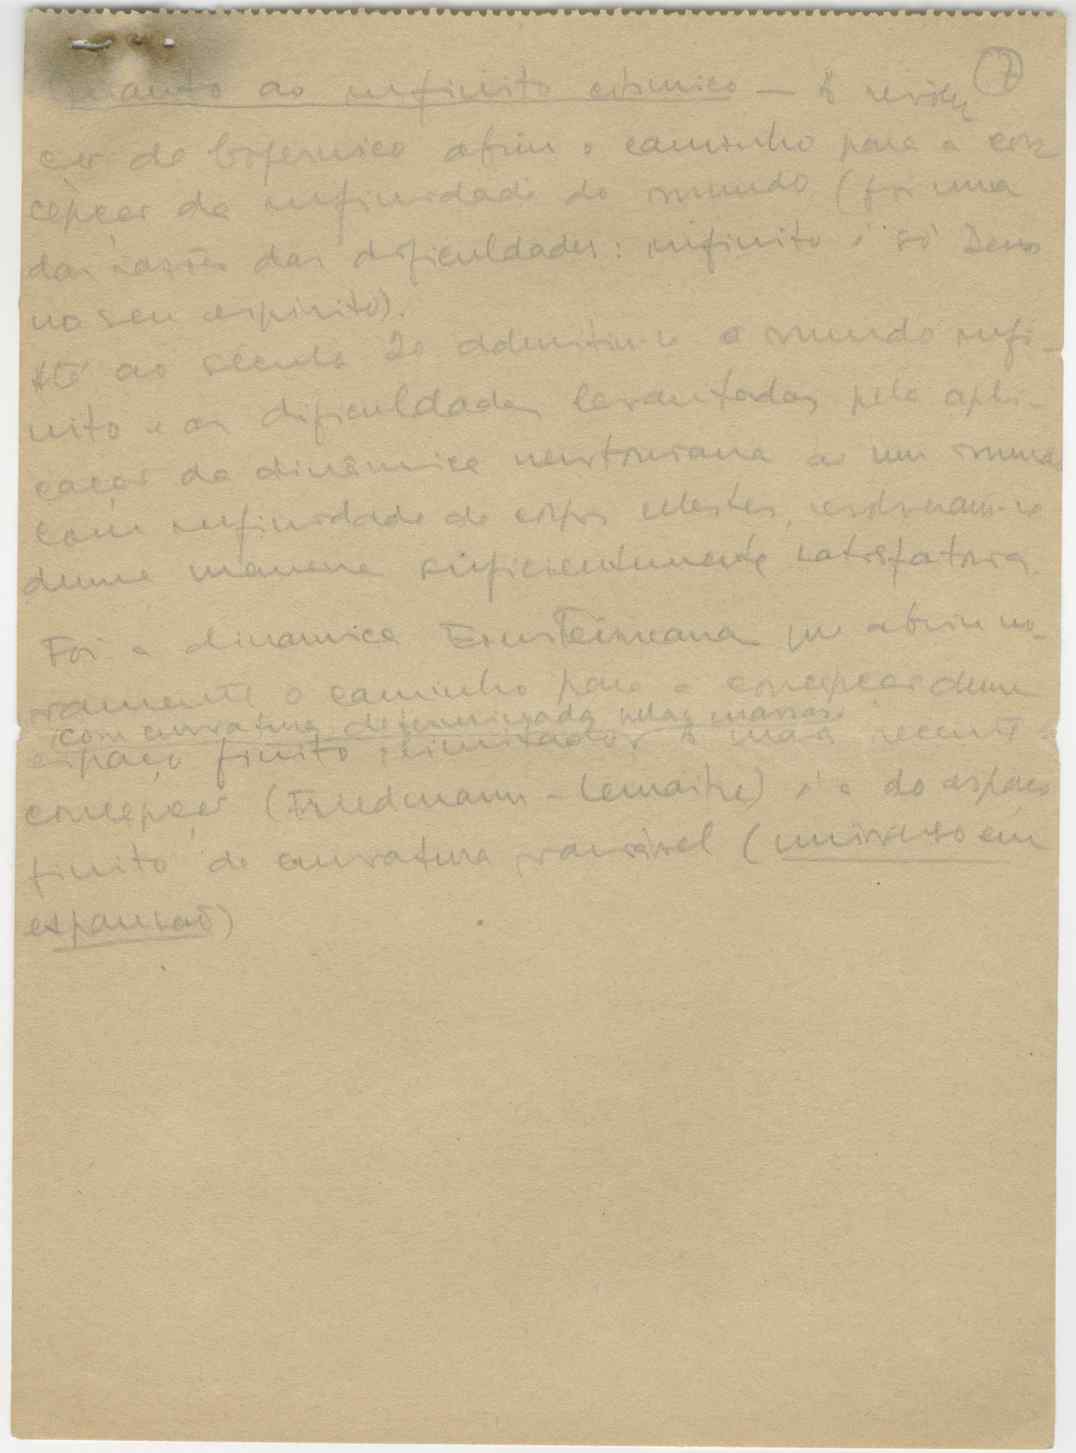 7
Quanto ao infinito cósmico — A revolu
ção de Copernico abriu o caminho para a con
cepção da infinidade do mundo (foi uma
das razões das dificuldades: infinito é só Deus
no seu espirito).
Até ao século 20 admitiu-se o mundo infi-
nito e as dificuldades levantadas pela apli-
cação da dinâmica newtoniana a um mundo
com infinidade de corpos celestes, resolveram-se
duma maneira suficientemente satisfatoria.
Foi a dinamica Einsteineana que abriu no-
vamente o caminho para a concepção dum
(com curvatura determinada pelas massas)
espaço finito ilimitado. A mais recente
concepção (Friedmann - Lemaitre) é a do espaço
finito de curvatura variável (universo em
expansão)